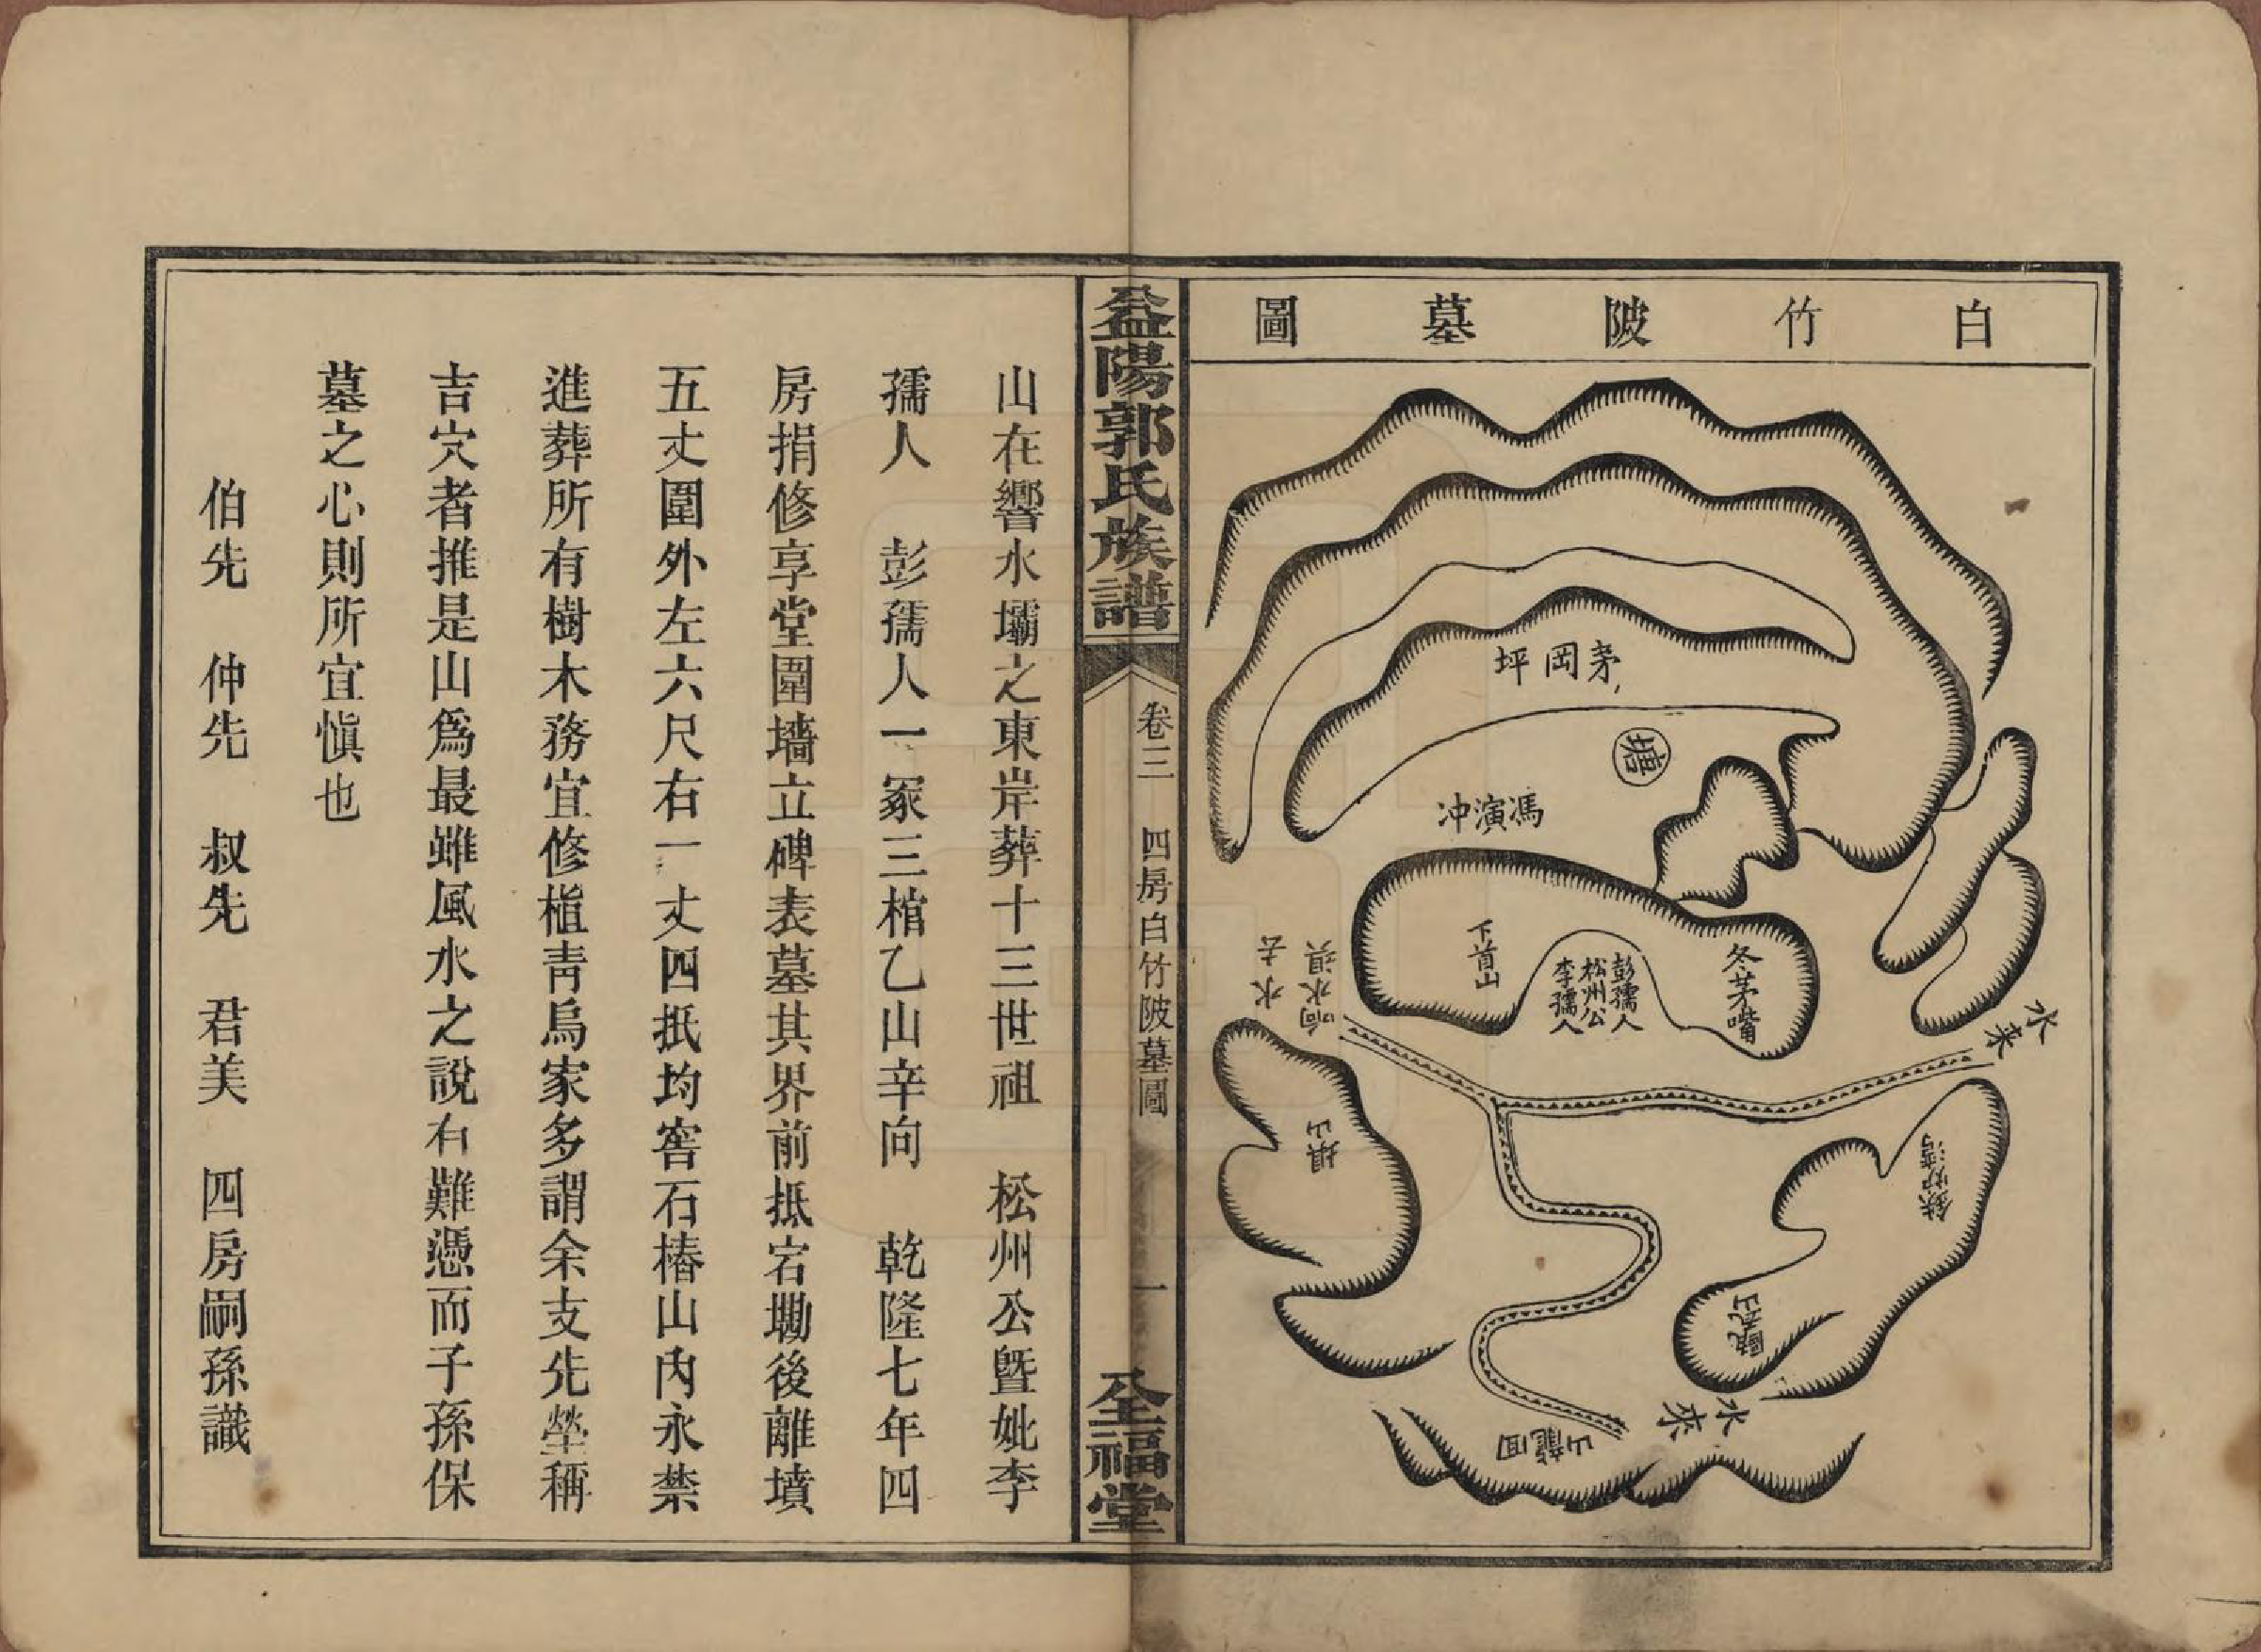 白竹陂墓圖
茅岡坪
塘
馮演冲
冬茅嘴
彭孺人
松州公
李孺人
下首山
水來
响水垻
水去
垻山
水來
回龍山
益陽郭氏族譜
卷三
四房白竹陂墓圖
一
全福堂
山在響水壩之東岸葬十三世祖　松州公暨妣李
孺人　彭孺人一冢三棺乙山辛向　乾隆七年四
房捐修享堂圍墻立碑表墓其界前抵宕墈後離墳
五丈圍外左六尺右一丈四抵均窖石樁山內永禁
進葬所有樹木務宜修植靑烏家多謂余支先塋稱
吉穴者推是山爲最雖風水之說右難憑而子孫保
墓之心則所宜愼也
伯先　仲先　叔先　君美　四房嗣孫識